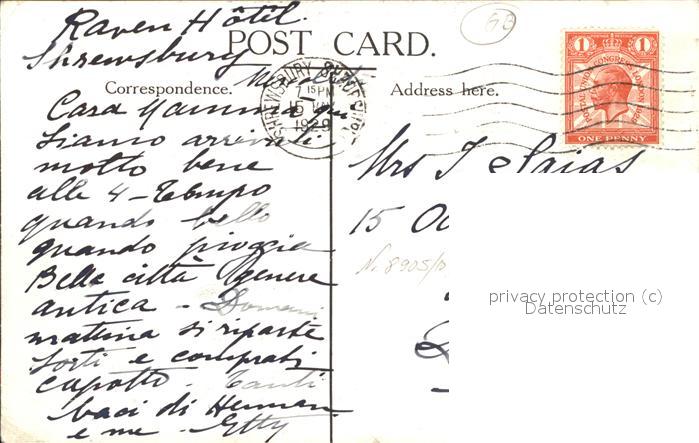 Raven Hôtel.
Shrewsbury
POST CARD.
Correspondence.
Address here.
SHREWSBURY SHROPSHIRE
7 15 PM
15
1929
1 1
POSTAL UNION CONGRESS LONDON 1929
ONE PENNY
GB
Cara Mamma qui
siamo arrivati
molto bene
alle 4 - Tempo
quando bello
quando pioggia
Bella città genere
antica - Domani
mattina si riparte
Sorti e comprati
capotto - Tanti
baci di Herman
e me - Etty
Mrs J Saias
15
N. 8905/
privacy protection (c)
Datenschutz